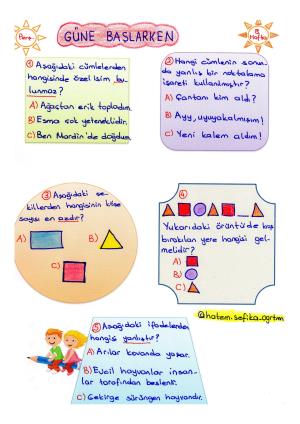 Perş.
GÜNE BAŞLARKEN
8.
Hafta
1 Aşağıdaki cümlelerden
hangisinde özel isim bu-
lunmaz?
A) Ağaçtan erik topladım.
B) Esma çok yeteneklidir.
C) Ben Mardin'de doğdum.
2 Hangi cümlenin sonun-
da yanlış bir noktalama
işareti kullanılmıştır?
A) Çantanı kim aldı?
B) Ayy, uyuyakalmışım!
C) Yeni kalem aldım!
3 Aşağıdaki şe-
killerden hangisinin köşe
sayısı en azdır?
A)
B)
C)
4
Yukarıdaki örüntüde boş
bırakılan yere hangisi gel-
melidir?
A)
B)
C)
@hatem.sefika.ogrtm
5 Aşağıdaki ifadelerden
hangisi yanlıştır?
A) Arılar kovanda yaşar.
B) Evcil hayvanlar insan-
lar tarafından beslenir.
C) Çekirge sürüngen hayvandır.